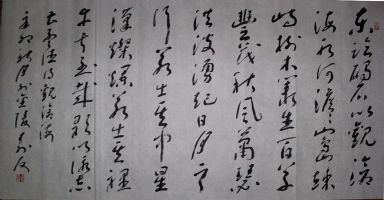 東臨碣石以觀滄
海水何澹澹山島竦
峙樹木叢生百草
豐茂秋風蕭瑟
洪波涌起日月之
行若出其中星
漢燦爛若出其裡
幸甚至哉歌以詠志
觀滄海
辛卯秋月於金陵